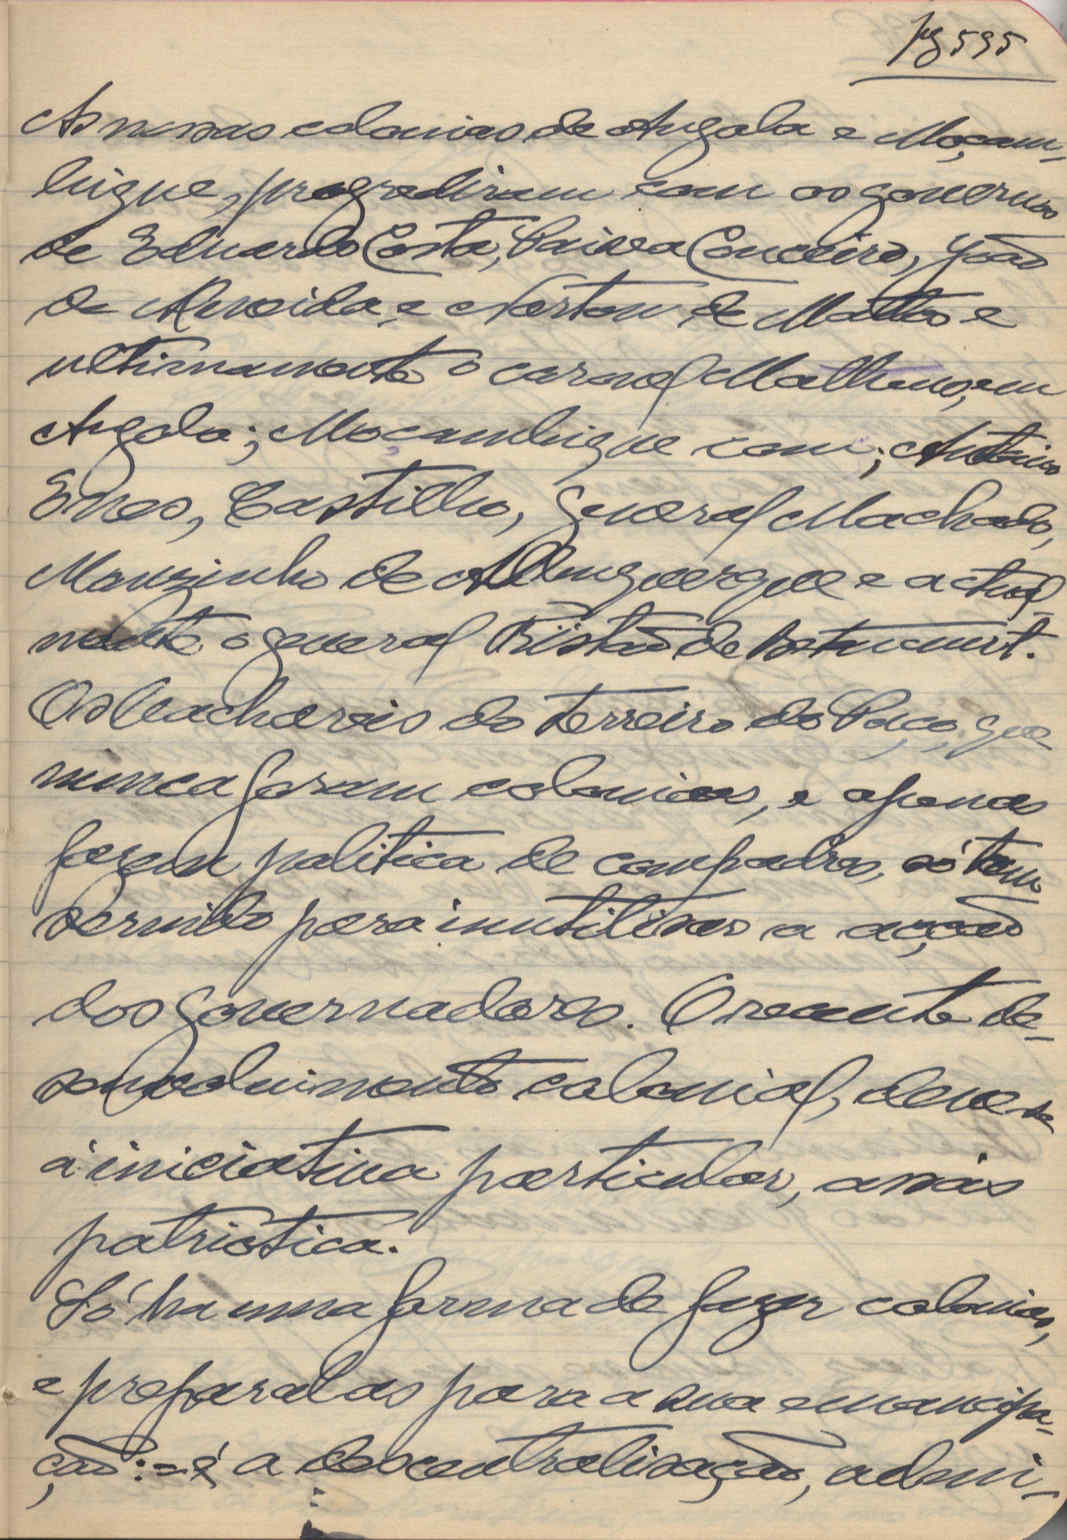 pg 595
As nossas colonias de Angola e Moçam-
bique, progrediram com os governos
de Eduardo Costa, Paiva Couceiro, João
de Almeida, e Norton de Mattos e
ultimamente o coronel Matheus, em
Angola; Moçambique com; Antonio
Enes, Castilho, general Machado,
Mouzinho de Albuquerque e actual-
mente o general Tristão de Betencourt.
Os bachareis do terreiro do Paço, que
nunca foram colonias, e apenas
fazem politica de compadres, só tem
servido para inutilisar a acção
dos governadores. O recente de-
senvolvimento colonial, deve se
á iniciativa particular, a mais
patriotica.
Só ha uma forma de fazer colonias,
e preparalas para a sua emancipa-
ção: = é a descentralisação, admi-